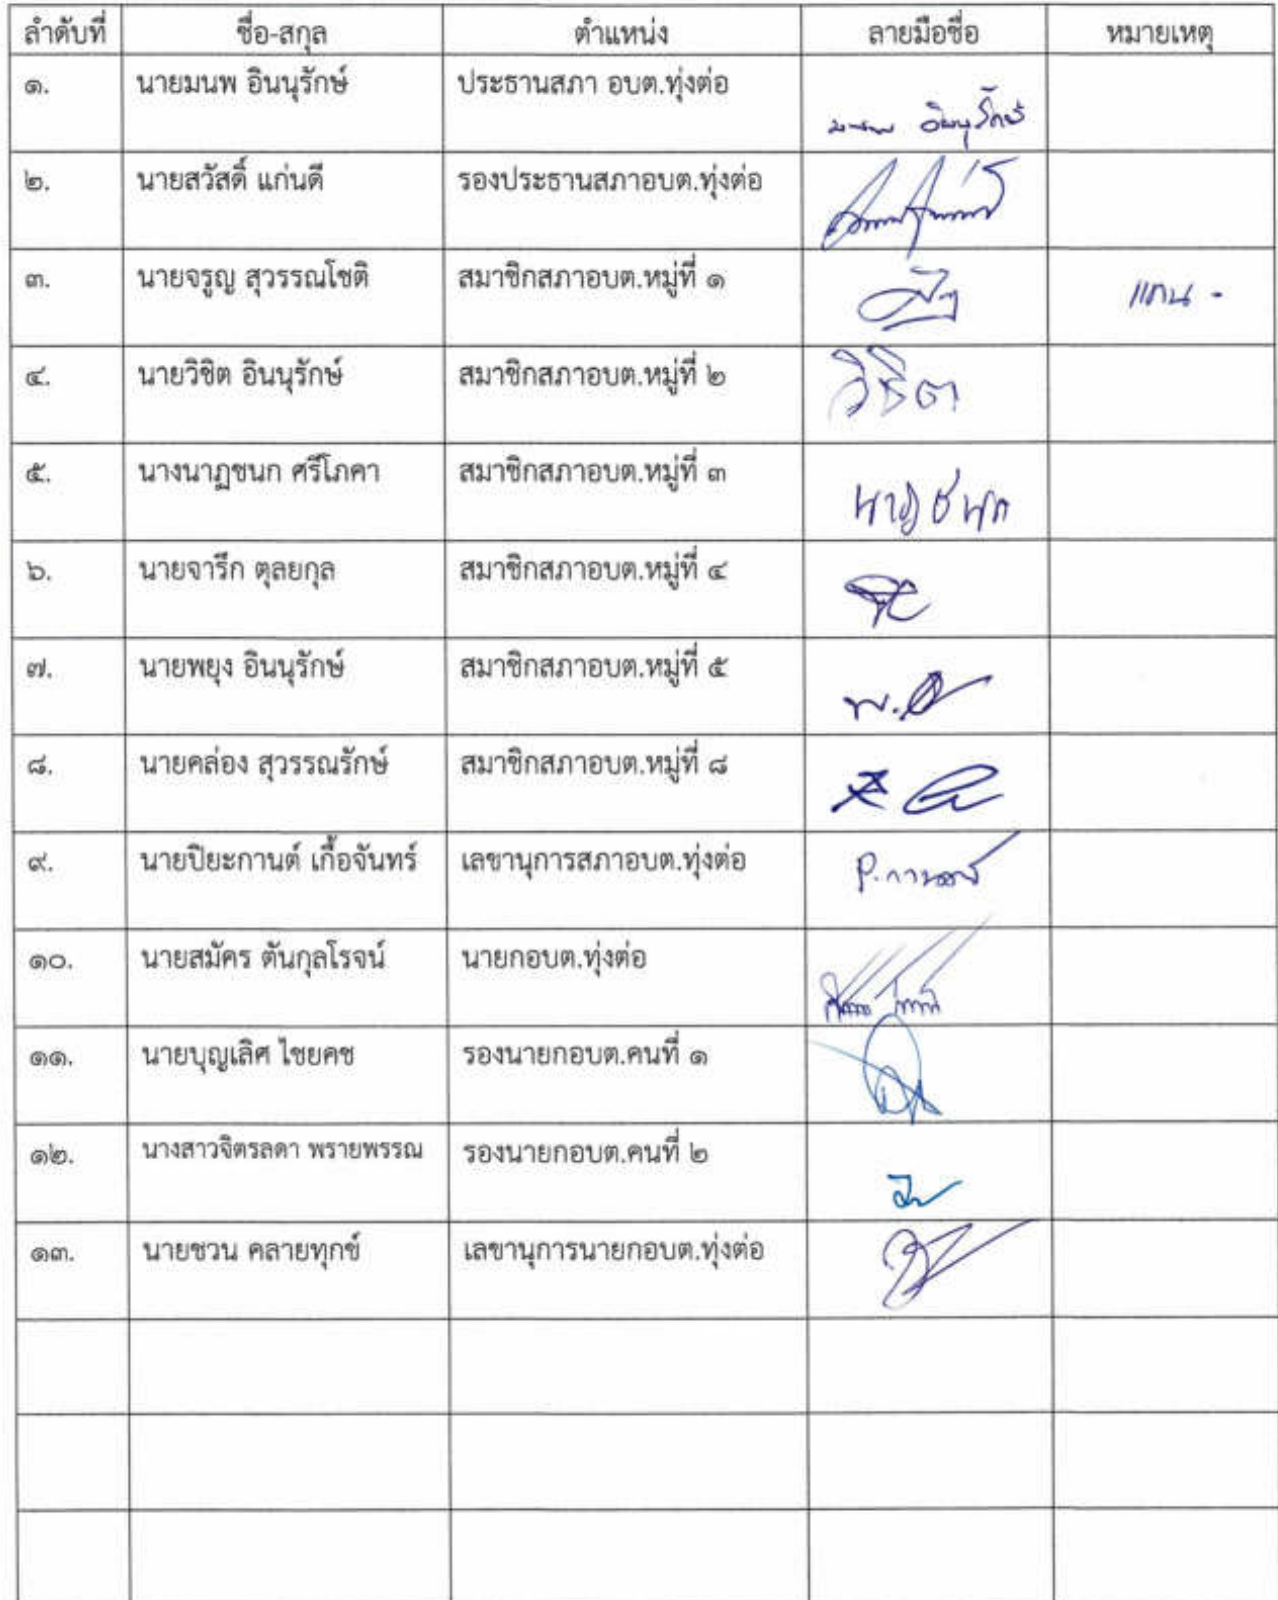 ลำดับที่ ชื่อ-สกุล ตำแหน่ง ลายมือชื่อ หมายเหตุ
๑. นายมนพ อินนุรักษ์ ประธานสภา อบต.ทุ่งต่อ
๒. นายสวัสดิ์ แก่นดี รองประธานสภาอบต.ทุ่งต่อ
๓. นายจรูญ สุวรรณโชติ สมาชิกสภาอบต.หมู่ที่ ๑ แทน -
๔. นายวิชิต อินนุรักษ์ สมาชิกสภาอบต.หมู่ที่ ๒ วิชิต
๕. นางนาฏชนก ศรีโภคา สมาชิกสภาอบต.หมู่ที่ ๓ นาฏชนก
๖. นายจารึก ตุลยกุล สมาชิกสภาอบต.หมู่ที่ ๔
๗. นายพยุง อินนุรักษ์ สมาชิกสภาอบต.หมู่ที่ ๕
๘. นายคล่อง สุวรรณรักษ์ สมาชิกสภาอบต.หมู่ที่ ๘
๙. นายปิยะกานต์ เกื้อจันทร์ เลขานุการสภาอบต.ทุ่งต่อ
๑๐. นายสมัคร ตันกุลโรจน์ นายกอบต.ทุ่งต่อ
๑๑. นายบุญเลิศ ไชยคช รองนายกอบต.คนที่ ๑
๑๒. นางสาวจิตรลดา พรายพรรณ รองนายกอบต.คนที่ ๒
๑๓. นายชวน คลายทุกข์ เลขานุการนายกอบต.ทุ่งต่อ